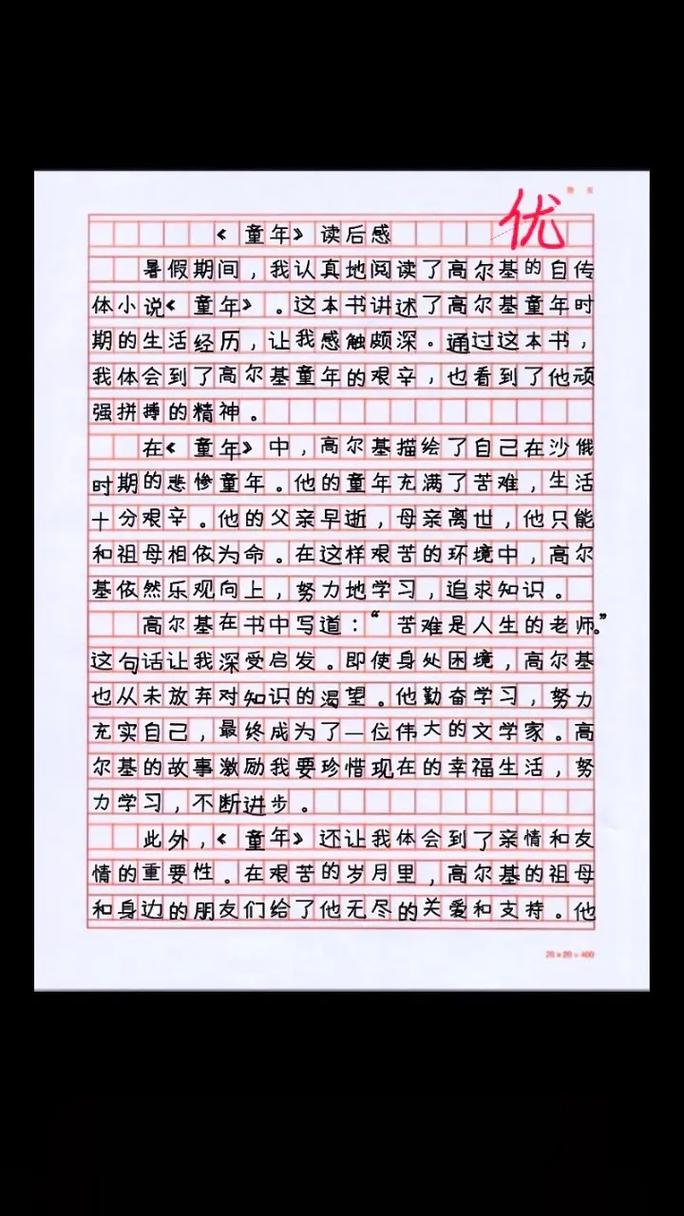 优
《童年》读后感
暑假期间，我认真地阅读了高尔基的自传
体小说《童年》。这本书讲述了高尔基童年时
期的生活经历，让我感触颇深。通过这本书，
我体会到了高尔基童年的艰辛，也看到了他顽
强拼搏的精神。
在《童年》中，高尔基描绘了自己在沙俄
时期的悲惨童年。他的童年充满了苦难，生活
十分艰辛。他的父亲早逝，母亲离世，他只能
和祖母相依为命。在这样艰苦的环境中，高尔
基依然乐观向上，努力地学习，追求知识。
高尔基在书中写道：“苦难是人生的老师。”
这句话让我深受启发。即使身处困境，高尔基
也从未放弃对知识的渴望。他勤奋学习，努力
充实自己，最终成为了一位伟大的文学家。高
尔基的故事激励我要珍惜现在的幸福生活，努
力学习，不断进步。
此外，《童年》还让我体会到了亲情和友
情的重要性。在艰苦的岁月里，高尔基的祖母
和身边的朋友们给了他无尽的关爱和支持。他
20×20=400